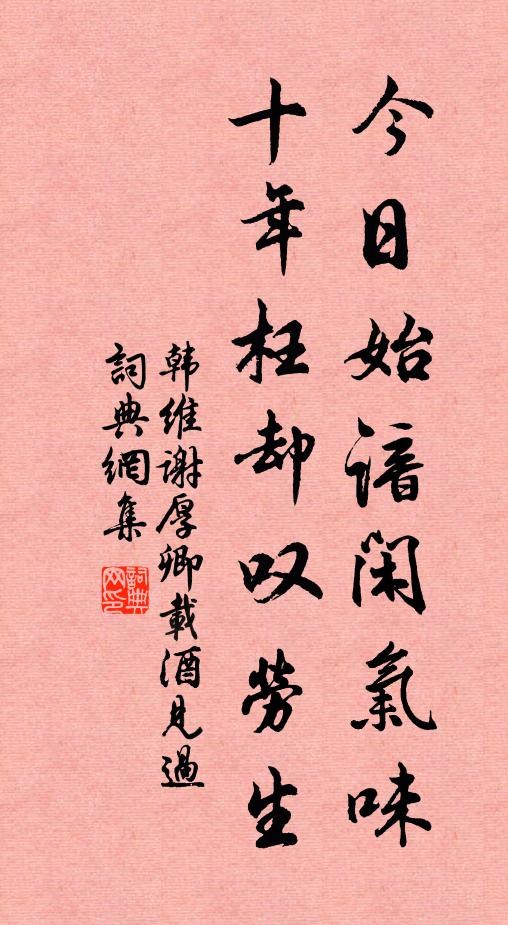 今日始谙閑氣味
十年枉却叹勞生
韩维谢厚卿載酒見過
詞典網集
詞典网印